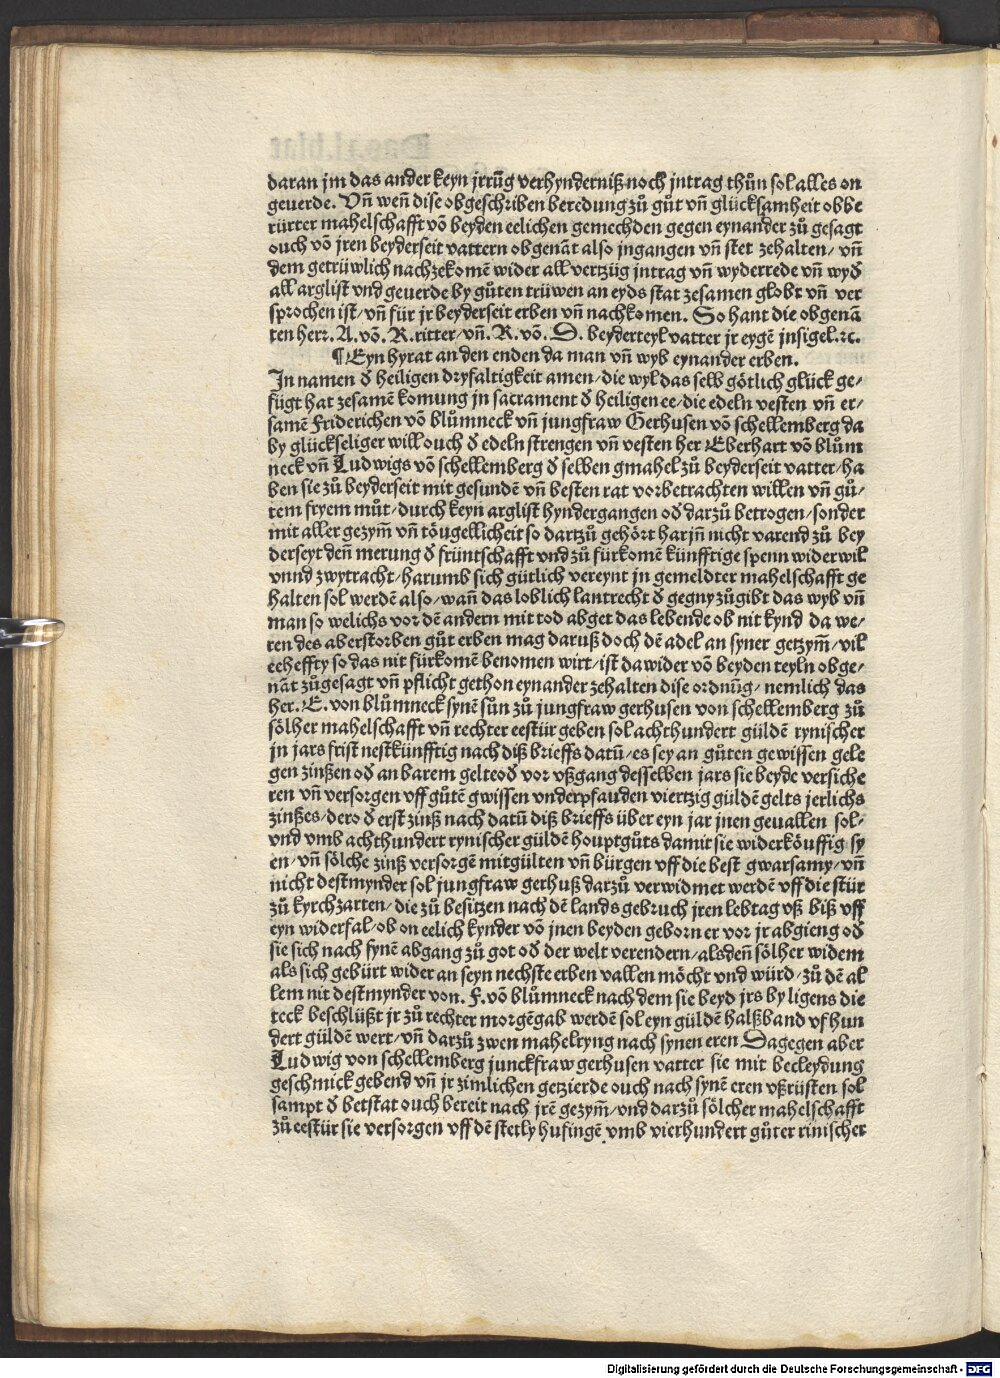 daran jm das ander keyn jrrũg verhynderniß noch jntrag thůn sol alles on
geuerde. Vñ weñ dise obgeschriben beredung zů gůt vñ glücksamheit obbe
rürter mahelschafft võ beyden eelichen gemechden gegen eynander zů gesagt
ouch võ jren beyderseit vattern obgenãt also jngangen vñ stet zehalten/ vñ
dem getrüwlich nachzekomẽ wider all vertzüg jntrag vñ wyderrede vñ wyđ
all arglist vnd geuerde by gůten trüwen an eyds stat zesamen globt vñ ver
sprochen ist/ vñ für jr beyderseit erben vñ nachkomen. So hant die obgenã
ten herr. A. võ. R. ritter/ vñ. R. võ. S. beyderteyl vatter jr eygẽ jnsigel. ꝛc.
¶ Eyn hyrat an den enden da man vñ wyb eynander erben.
In namen đ heiligen dryfaltigkeit amen/ die wyl das selb götlich glück ge/
fügt hat zesamẽ komung jn sacrament đ heiligen ee/ die edeln vesten vñ er/
samẽ Friderichen võ blůmneck vñ jungfraw Gerhusen võ schellemberg da
by glückseliger will ouch đ edeln strengen vñ vesten her Eberhart võ blům
neck vñ Ludwigs võ schellemberg đ selben gmahel zů beyderseit vatter/ ha
ben sie zů beyderseit mit gesundẽ vñ besten rat vorbetrachten willen vñ gů/
tem fryem můt/ durch keyn arglist hyndergangen ođ darzů betrogen/ sonder
mit aller gezym̃ vñ töugellicheit so dartzů gehört harjñ nicht varend zů bey
derseyt deñ merung đ früntschafft vnd zů fürkomẽ künfftige spenn widerwil
vnnd zwytracht/ harumb sich gütlich vereynt jn gemeldter mahelschafft ge
halten sol werdẽ also/ wañ das loblich lantrecht đ gegny zůgibt das wyb vñ
man so welichs vor dẽ andern mit tod abget das lebende ob nit kynd da we/
ren des aberstorben gůt erben mag daruß doch dẽ adel an syner getzym̃/ vil
eeheffty so das nit fürkomẽ benomen wirt/ ist dawider võ beyden teyln obge/
nãt zůgesagt vñ pflicht gethon eynander zehalten dise ordnũg/ nemlich das
her. E. von blůmneck synẽ sůn zů jungfraw gerhusen von schellemberg zů
sölher mahelschafft vñ rechter eestür geben sol achthundert güldẽ rynischer
jn jars frist nestkünfftig nach diß brieffs datũ/ es sey an gůten gewissen gele
gen zinßen ođ an barem gelt eođ vor vßgang desselben jars sie beyde versiche
ren vñ versorgen vff gůtẽ gwissen vnderpfanden viertzig güldẽ gelts jerlichs
zinßes/ dero đ erst zinß nach datũ diß brieffs über eyn jar jnen geuallen sol/
vnd vmb achthundert rynischer güldẽ houptgůts damit sie widerköuffig sy
en/ vñ sölche zinß versorgẽ mitgülten vñ bürgen vff die best gwarsamy/ vñ
nicht destmynder sol jungfraw gerhuß darzů verwidmet werdẽ vff die stür
zů kyrchzarten/ die zů besitzen nach dẽ lands gebruch jren lebtag vß biß vff
eyn widerfal/ ob on eelich kynder võ jnen beyden geborn er vor jr abgieng ođ
sie sich nach synẽ abgang zů got ođ der welt verendern/ alsdeñ sölher widem
als sich gebürt wider an seyn nechste erben vallen möcht vnd würd/ zů dẽ al
lem nit destmynder von. F. võ blůmneck nach dem sie beyd jrs by ligens die
teck beschlüßt jr zů rechter morgẽgab werdẽ sol eyn güldẽ halßband vf hun
dert güldẽ wert/ vñ darzů zwen mahelryng nach synen eren Dagegen aber
Ludwig von schellemberg junckfraw gerhusen vatter sie mit becleydung
geschmick gebend vñ jr zimlichen getzierde ouch nach synẽ eren vßrüsten sol
sampt đ betstat ouch bereit nach jrẽ gezym̃/ vnd darzů sölcher mahelschafft
zů eestür sie versorgen vff dẽ stetly hufingẽ vmb vierhundert gůter rinischer
Digitalisierung gefördert durch die Deutsche Forschungsgemeinschaft - DFG